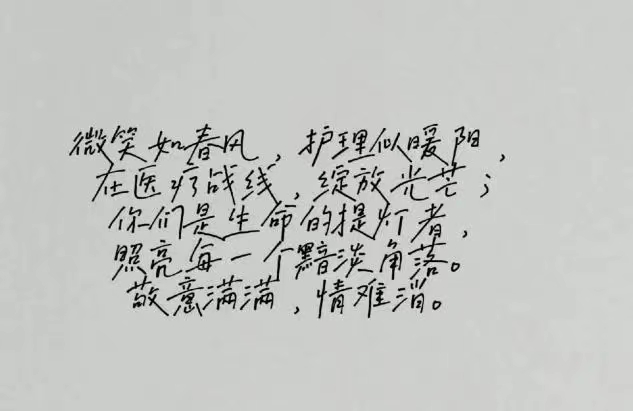 微笑如春风，护理似暖阳，
在医疗战线，绽放光芒；
你们是生命的提灯者，
照亮每一个黯淡角落。
敬意满满，情难消。